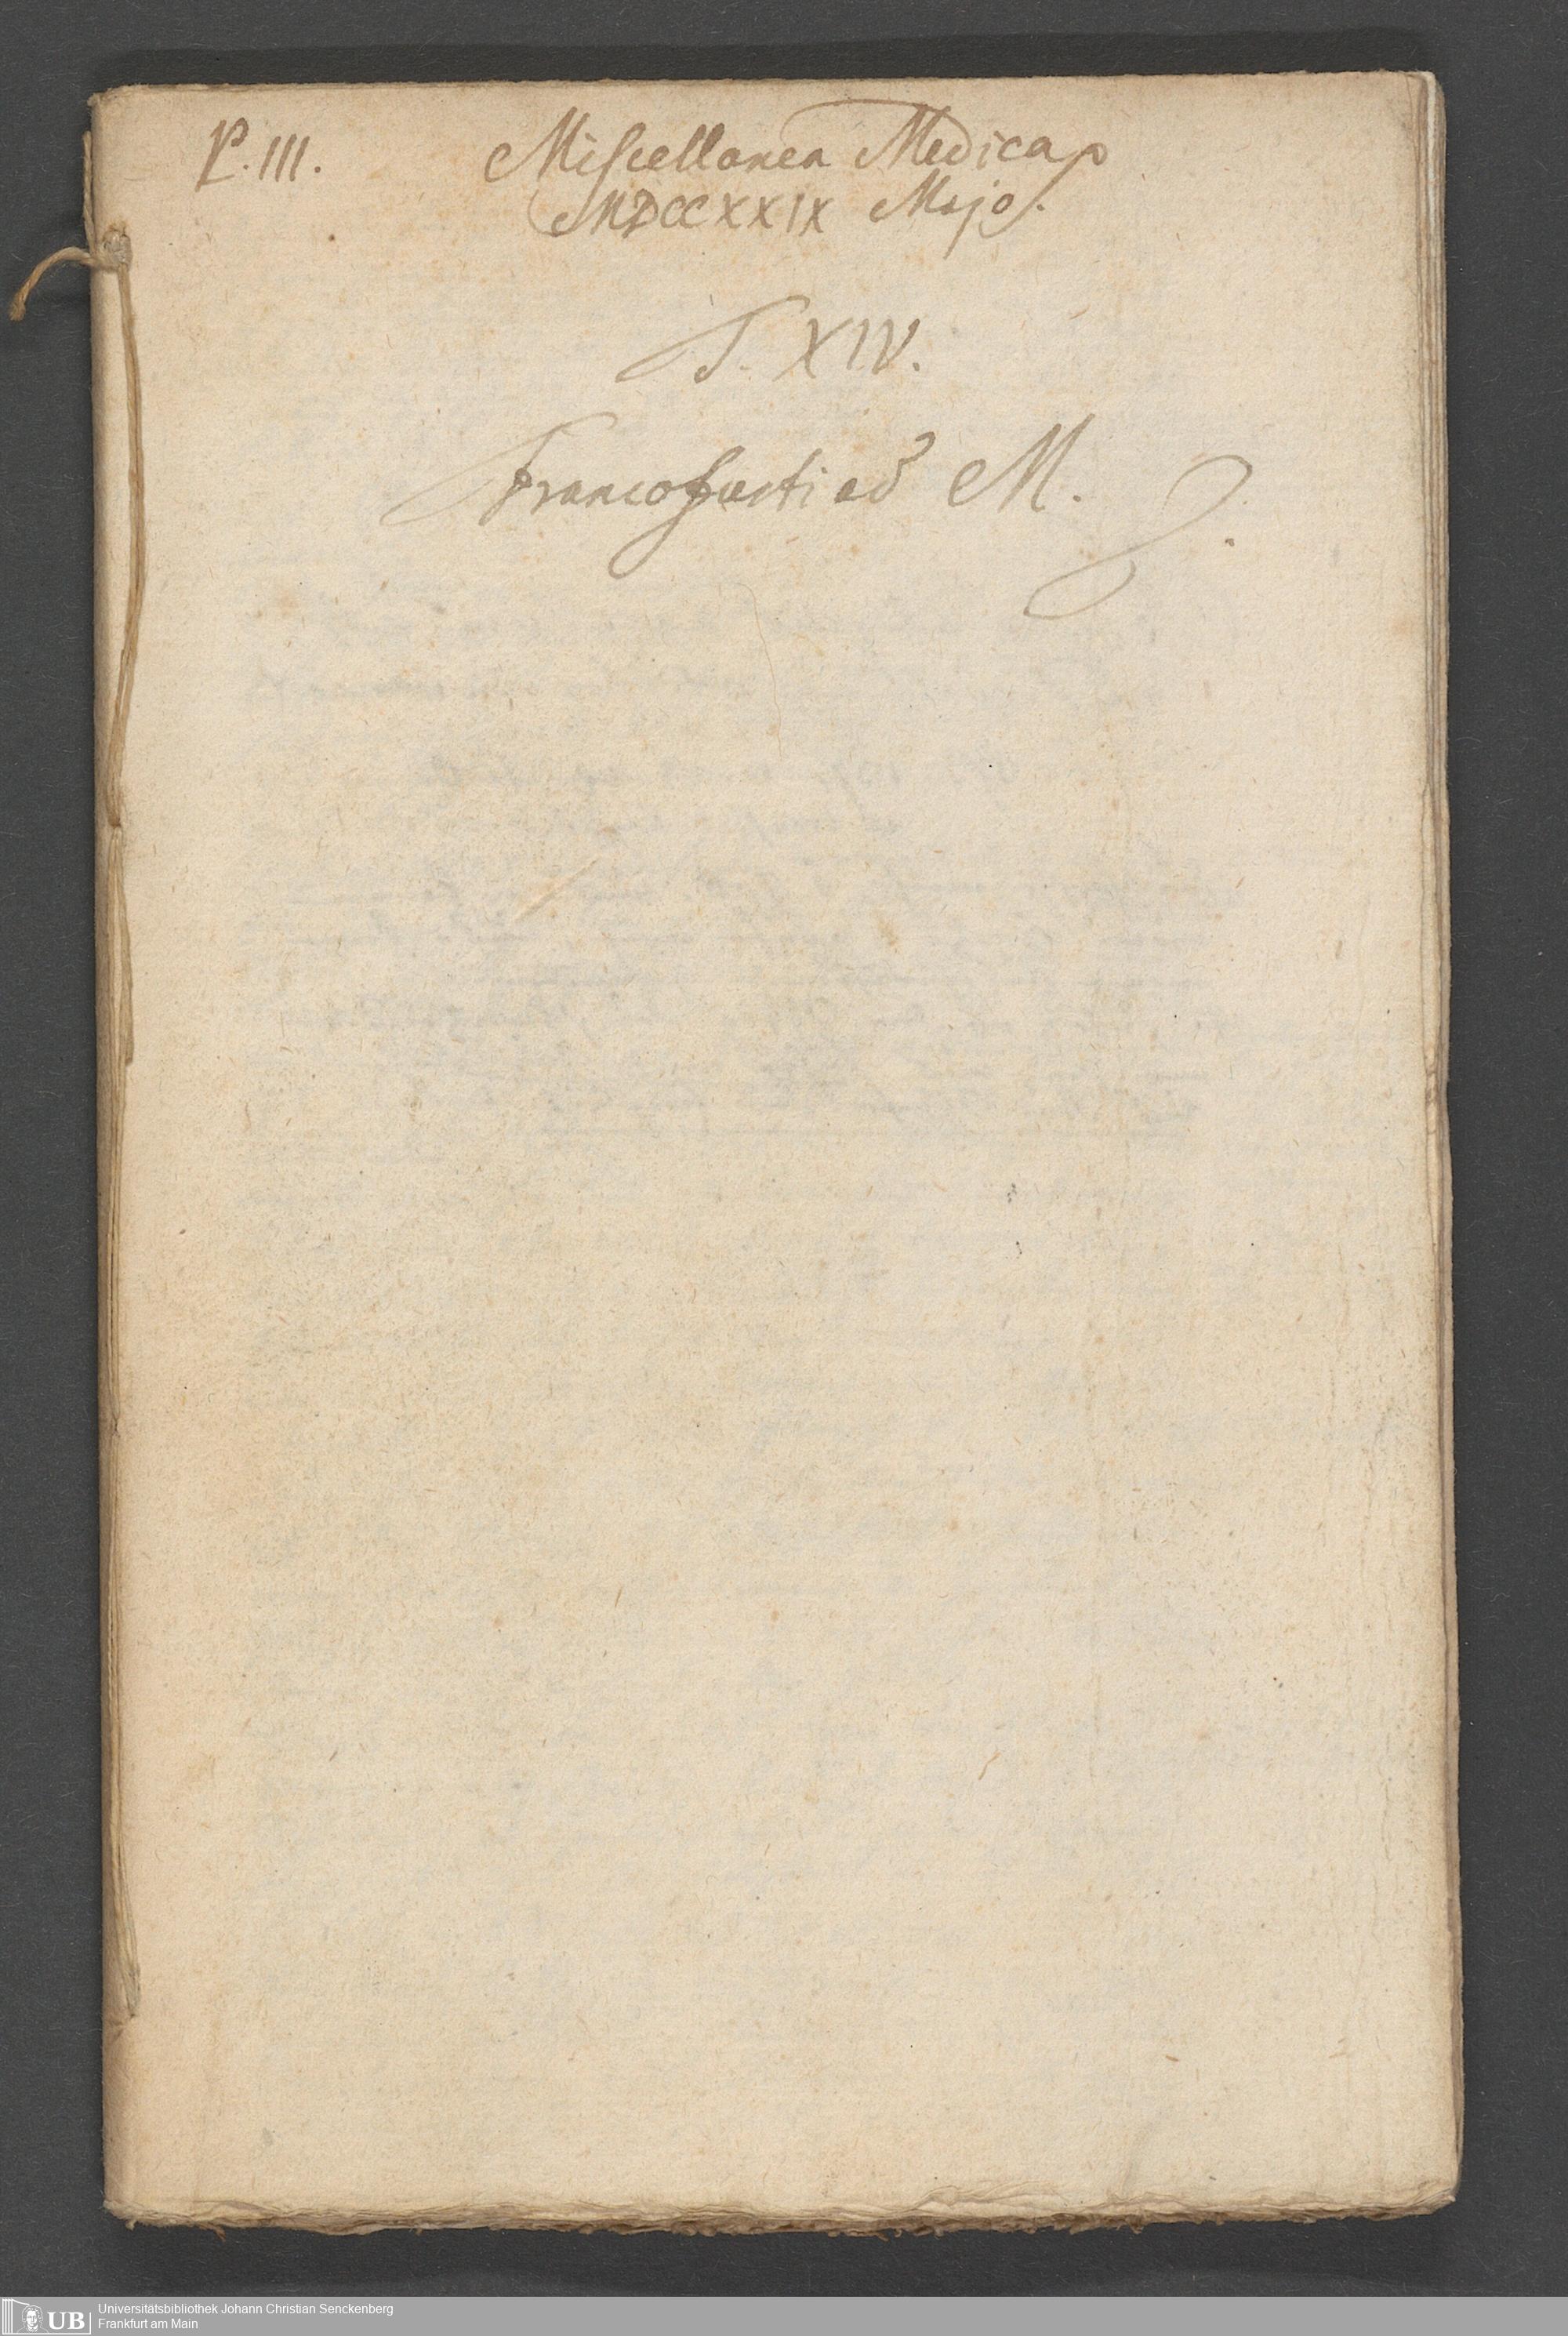 P. III. Miscellanea Medica
MDCCXXIX Majo.
T. XIV.
Francofurti ad M.
UB Universitätsbibliothek Johann Christian Senckenberg
Frankfurt am Main